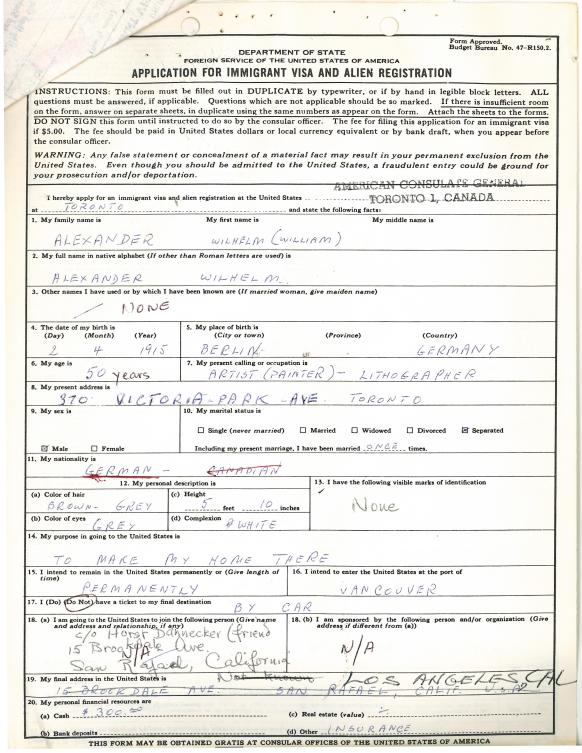 Form Approved.
Budget Bureau No. 47-R150.2.
DEPARTMENT OF STATE
FOREIGN SERVICE OF THE UNITED STATES OF AMERICA
APPLICATION FOR IMMIGRANT VISA AND ALIEN REGISTRATION
INSTRUCTIONS: This form must be filled out in DUPLICATE by typewriter, or if by hand in legible block letters. ALL
questions must be answered, if applicable. Questions which are not applicable should be so marked. If there is insufficient room
on the form, answer on separate sheets, in duplicate using the same numbers as appear on the form. Attach the sheets to the forms.
DO NOT SIGN this form until instructed to do so by the consular officer. The fee for filing this application for an immigrant visa
if $5.00. The fee should be paid in United States dollars or local currency equivalent or by bank draft, when you appear before
the consular officer.
WARNING: Any false statement or concealment of a material fact may result in your permanent exclusion from the
United States. Even though you should be admitted to the United States, a fraudulent entry could be ground for
your prosecution and/or deportation.
AMERICAN CONSULATE GENERAL
I hereby apply for an immigrant visa and alien registration at the United States TORONTO 1, CANADA
at TORONTO and state the following facts:
1. My family name is My first name is My middle name is
ALEXANDER WILHELM (WILLIAM)
2. My full name in native alphabet (If other than Roman letters are used) is
ALEXANDER WILHELM
3. Other names I have used or by which I have been known are (If married woman, give maiden name)
NONE
4. The date of my birth is 5. My place of birth is
(Day) (Month) (Year) (City or town) (Province) (Country)
2 4 1915 BERLIN GERMANY
6. My age is 7. My present calling or occupation is
50 years ARTIST (PAINTER) - LITHOGRAPHER
8. My present address is
370 VICTORIA-PARK-AVE. TORONTO
9. My sex is 10. My marital status is
Single (never married) Married Widowed Divorced Separated
Male Female Including my present marriage, I have been married ONCE times.
11. My nationality is
GERMAN - CANADIAN
12. My personal description is 13. I have the following visible marks of identification
(a) Color of hair (c) Height
BROWN-GREY 5 feet 10 inches None
(b) Color of eyes (d) Complexion
GREY WHITE
14. My purpose in going to the United States is
TO MAKE MY HOME THERE
15. I intend to remain in the United States permanently or (Give length of time) 16. I intend to enter the United States at the port of
PERMANENTLY VANCOUVER
17. I (Do) (Do Not) have a ticket to my final destination BY CAR
18. (a) I am going to the United States to join the following person (Give name and address and relationship, if any) 18. (b) I am sponsored by the following person and/or organization (Give address if different from (a))
c/o Horst Dannecker (friend
15 Brookdale Ave. N/A N/A
San Rafael, California
19. My final address in the United States is Not Known LOS ANGELES, CAL
15 BROOKDALE AVE. SAN RAFAEL, CALIF. U.S.A.
20. My personal financial resources are
(a) Cash $300.00 (c) Real estate (value)
(b) Bank deposits (d) Other INSURANCE
THIS FORM MAY BE OBTAINED GRATIS AT CONSULAR OFFICES OF THE UNITED STATES OF AMERICA